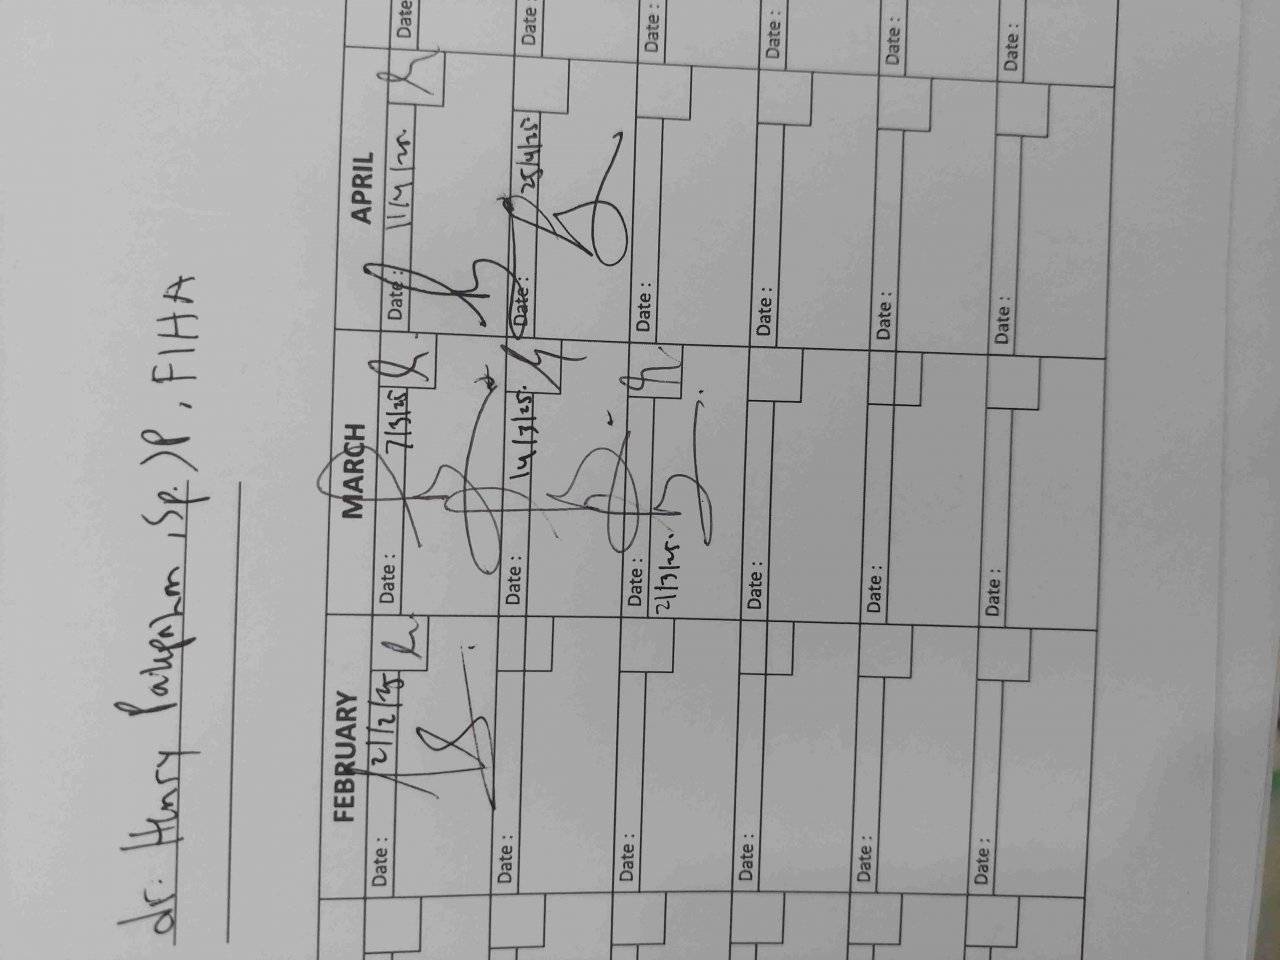 dr. Henry , Sp.JP, FIHA
FEBRUARY MARCH APRIL
Date : 21/2/25 Date : 7/3/25 Date : 11/4/25 Date
Date : Date : 14/3/25. Date : 25/4/25 Date :
Date : Date : Date : Date :
21/3/25.
Date : Date : Date : Date :
Date : Date : Date : Date :
Date : Date : Date : Date :